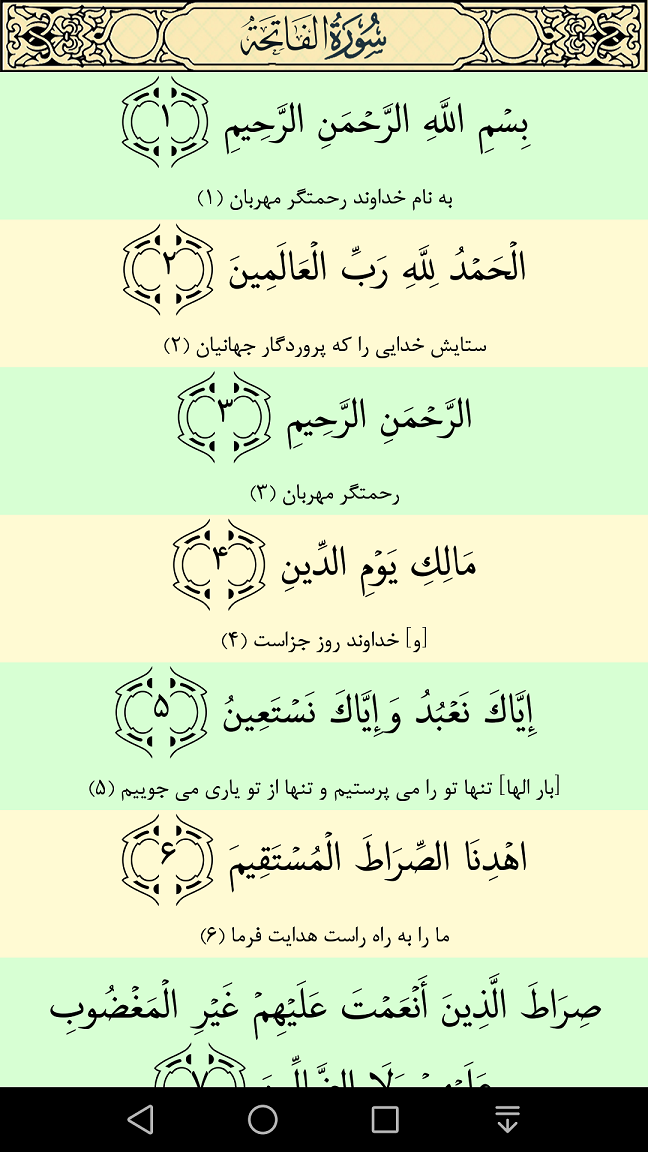 سُورَةُ الفَاتِحَةُ
بِسْمِ اللَّهِ الرَّحْمَنِ الرَّحِيمِ ۱
به نام خداوند رحمتگر مهربان (۱)
الْحَمْدُ لِلَّهِ رَبِّ الْعَالَمِينَ ۲
ستایش خدایی را که پروردگار جهانیان (۲)
الرَّحْمَنِ الرَّحِيمِ ۳
رحمتگر مهربان (۳)
مَالِكِ يَوْمِ الدِّينِ ۴
[و] خداوند روز جزاست (۴)
إِيَّاكَ نَعْبُدُ وَإِيَّاكَ نَسْتَعِينُ ۵
[بار الها] تنها تو را می پرستیم و تنها از تو یاری می جوییم (۵)
اهْدِنَا الصِّرَاطَ الْمُسْتَقِيمَ ۶
ما را به راه راست هدایت فرما (۶)
صِرَاطَ الَّذِينَ أَنْعَمْتَ عَلَيْهِمْ غَيْرِ الْمَغْضُوبِ
عَلَيْهِمْ وَلَا الضَّالِّينَ ۷